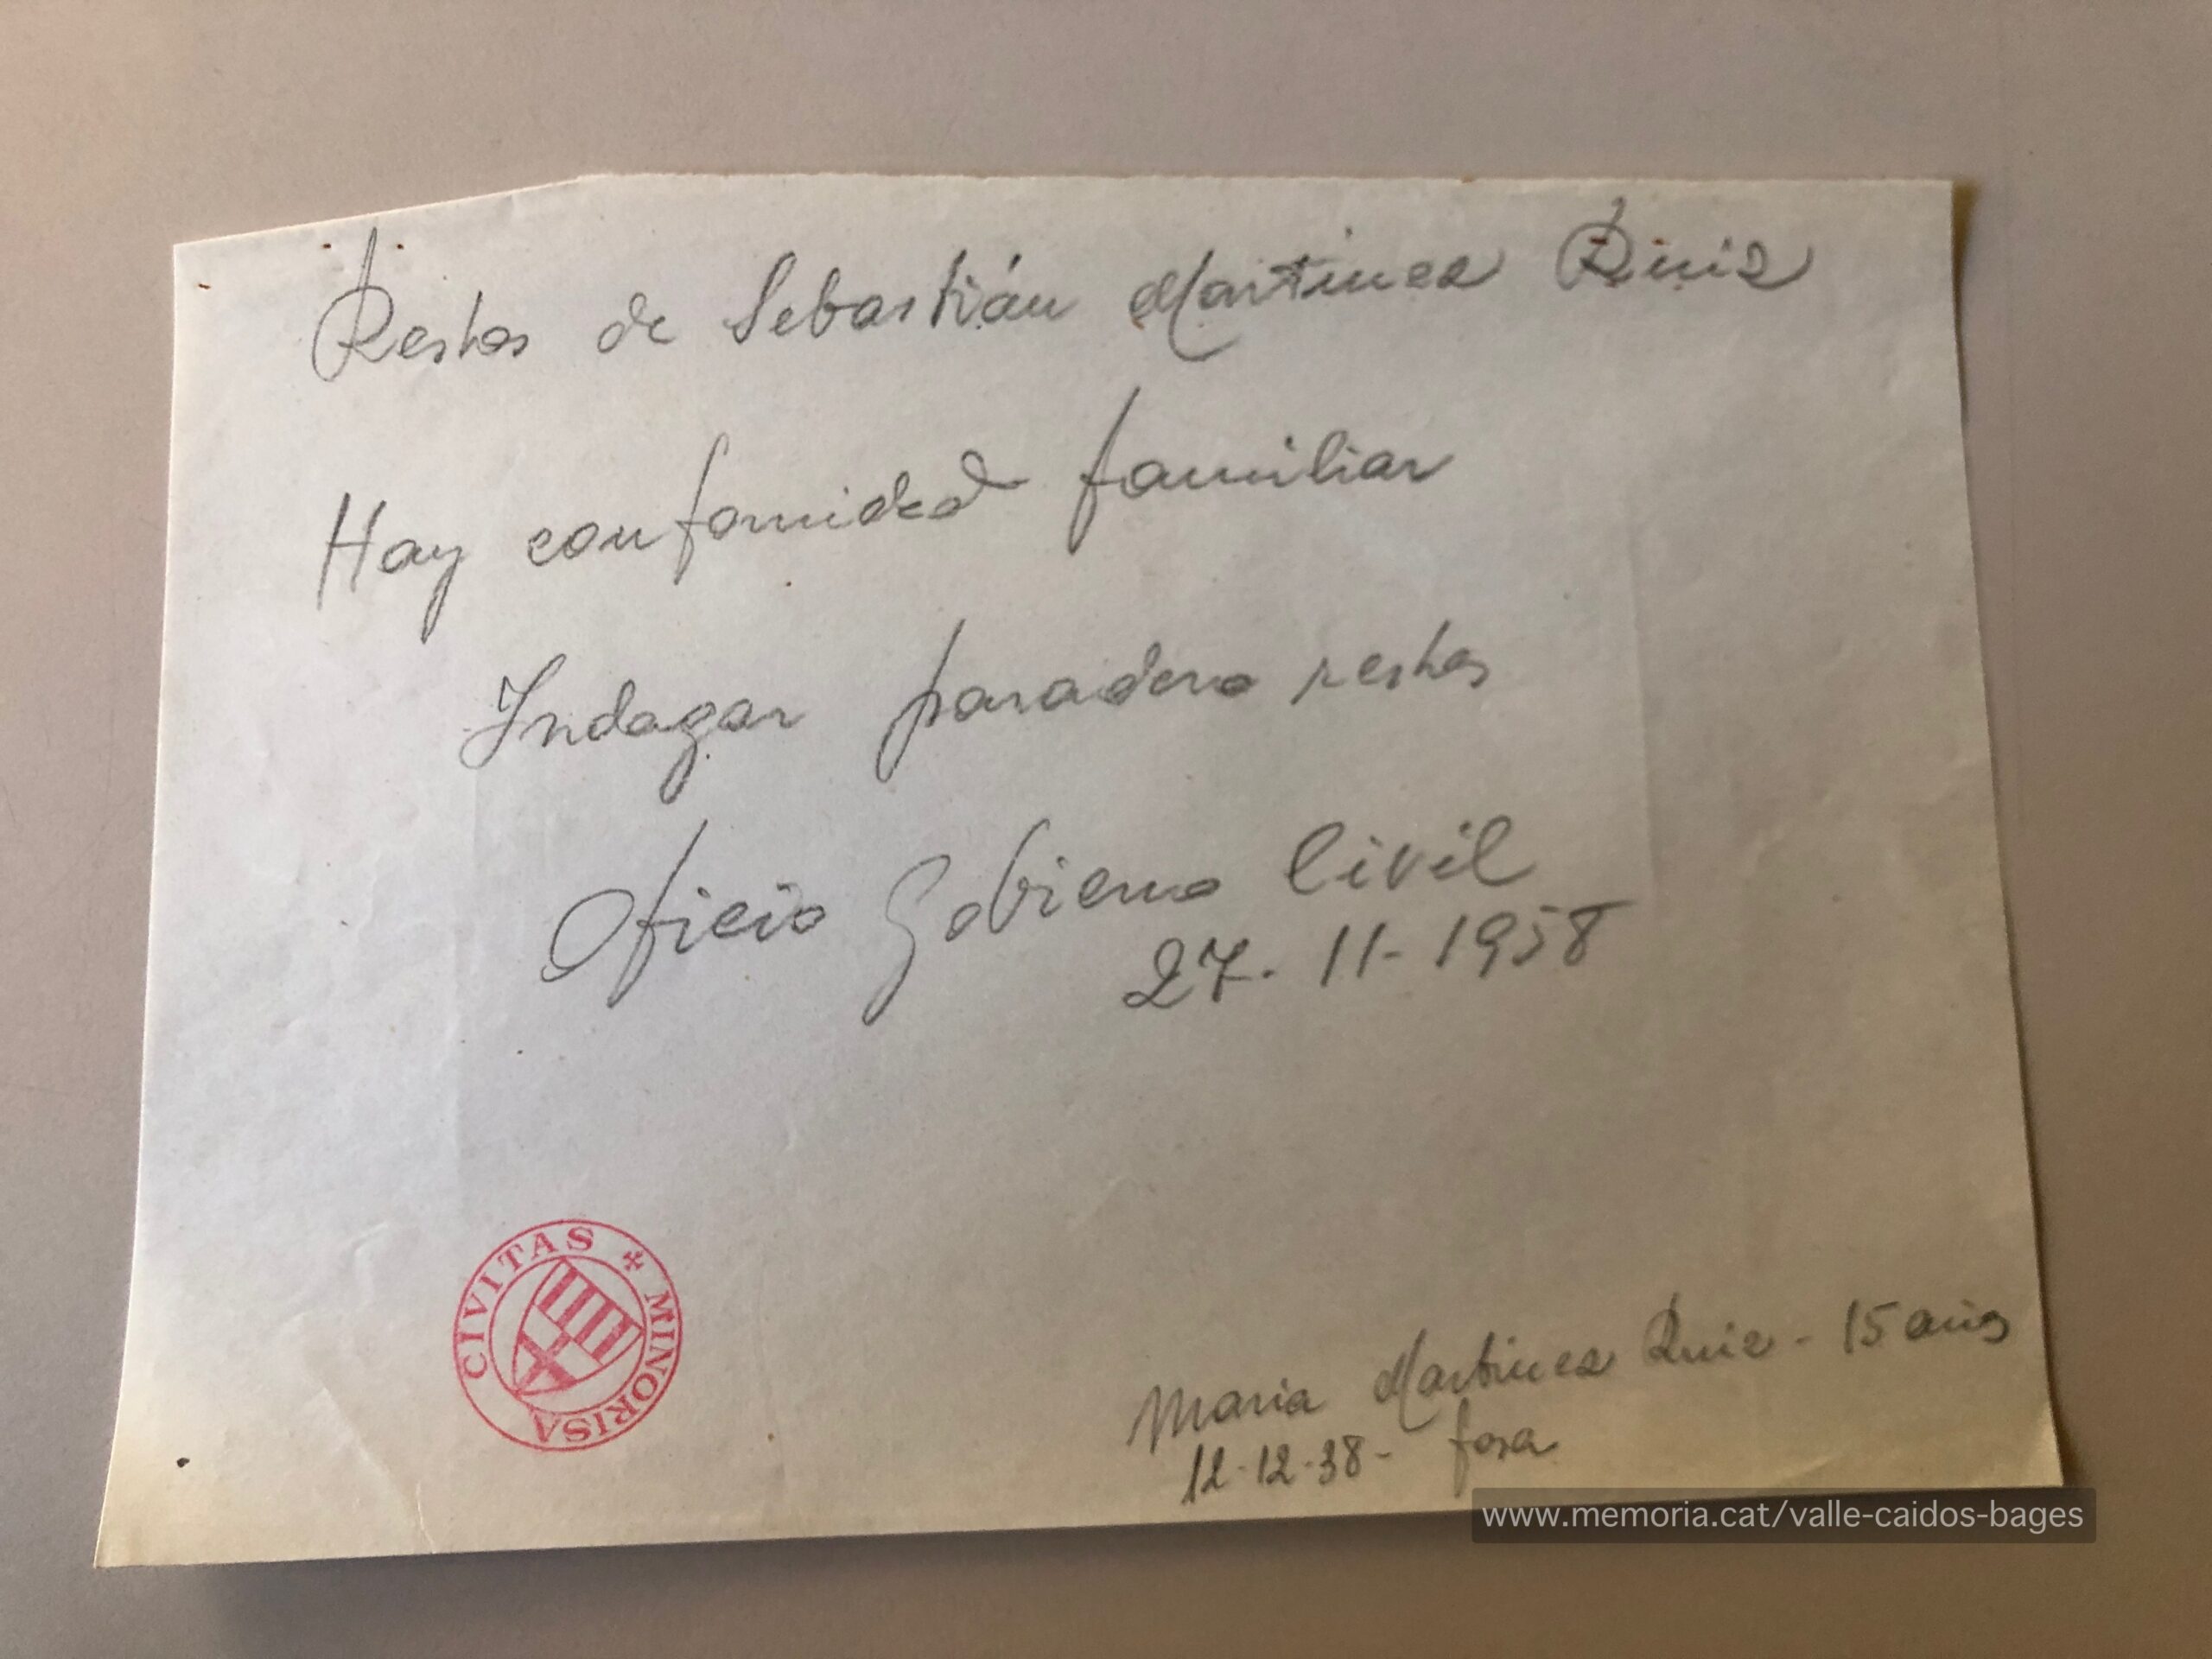 Restos de Sebastián Martinez Ruiz
Hay conformidad familiar
Indagar paradero restos
Oficio Gobierno Civil
27-11-1958
CIVITAS MINORISA
Maria Martinez Ruiz - 15 años
12-12-38- fosa
www.memoria.cat/valle-caidos-bages